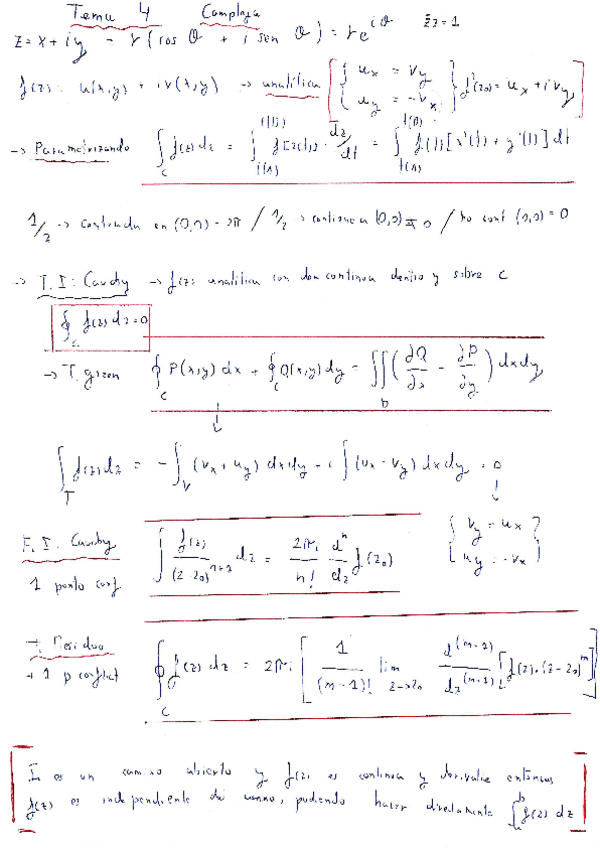 Tema 4 Compleja
z = x + iy = r(cos θ + i sen θ) = re^{iθ} z̄z = 1
f(z) = u(x,y) + i v(x,y) → analítica { u_x = v_y u_y = -v_x } f'(z_0) = u_x + i v_y
→ Parametrizando ∫_C f(z) dz = ∫ f[z(t)] · dz/dt = ∫ f(t)[x'(t) + y'(t)] dt
1/z → centrada en (0,0) - 2π / 1/z → contiene a (0,0) = 0 / no cont (0,0) = 0
→ T.I: Cauchy → f(z) analítica con continua dentro y sobre C
∮_C f(z) dz = 0
→ T. green ∮_C P(x,y) dx + ∮_C Q(x,y) dy = ∬_D (∂Q/∂x - ∂P/∂y) dxdy
∫_T f(z) dz = -∫_V (v_x + u_y) dxdy - i ∫ (u_x - v_y) dxdy = 0
{ v_y = u_x u_y = -v_x }
F. I. Cauchy ∫ f(z)/(z-z_0)^{n+1} dz = 2πi/n! d^n/dz f(z_0)
1 punto conf
T. Residuo ∮_C f(z) dz = 2πi [ 1/(m-1)! lim_{z→z_0} d^{(m-1)}/dz^{(m-1)} [f(z)·(z-z_0)^m] ]
→ 1 p conflict
es un camino abierto y f(z) es continua y derivable entonces
f(z) es independiente del camino, pudiendo hacer directamente ∫_a^b f(z) dz